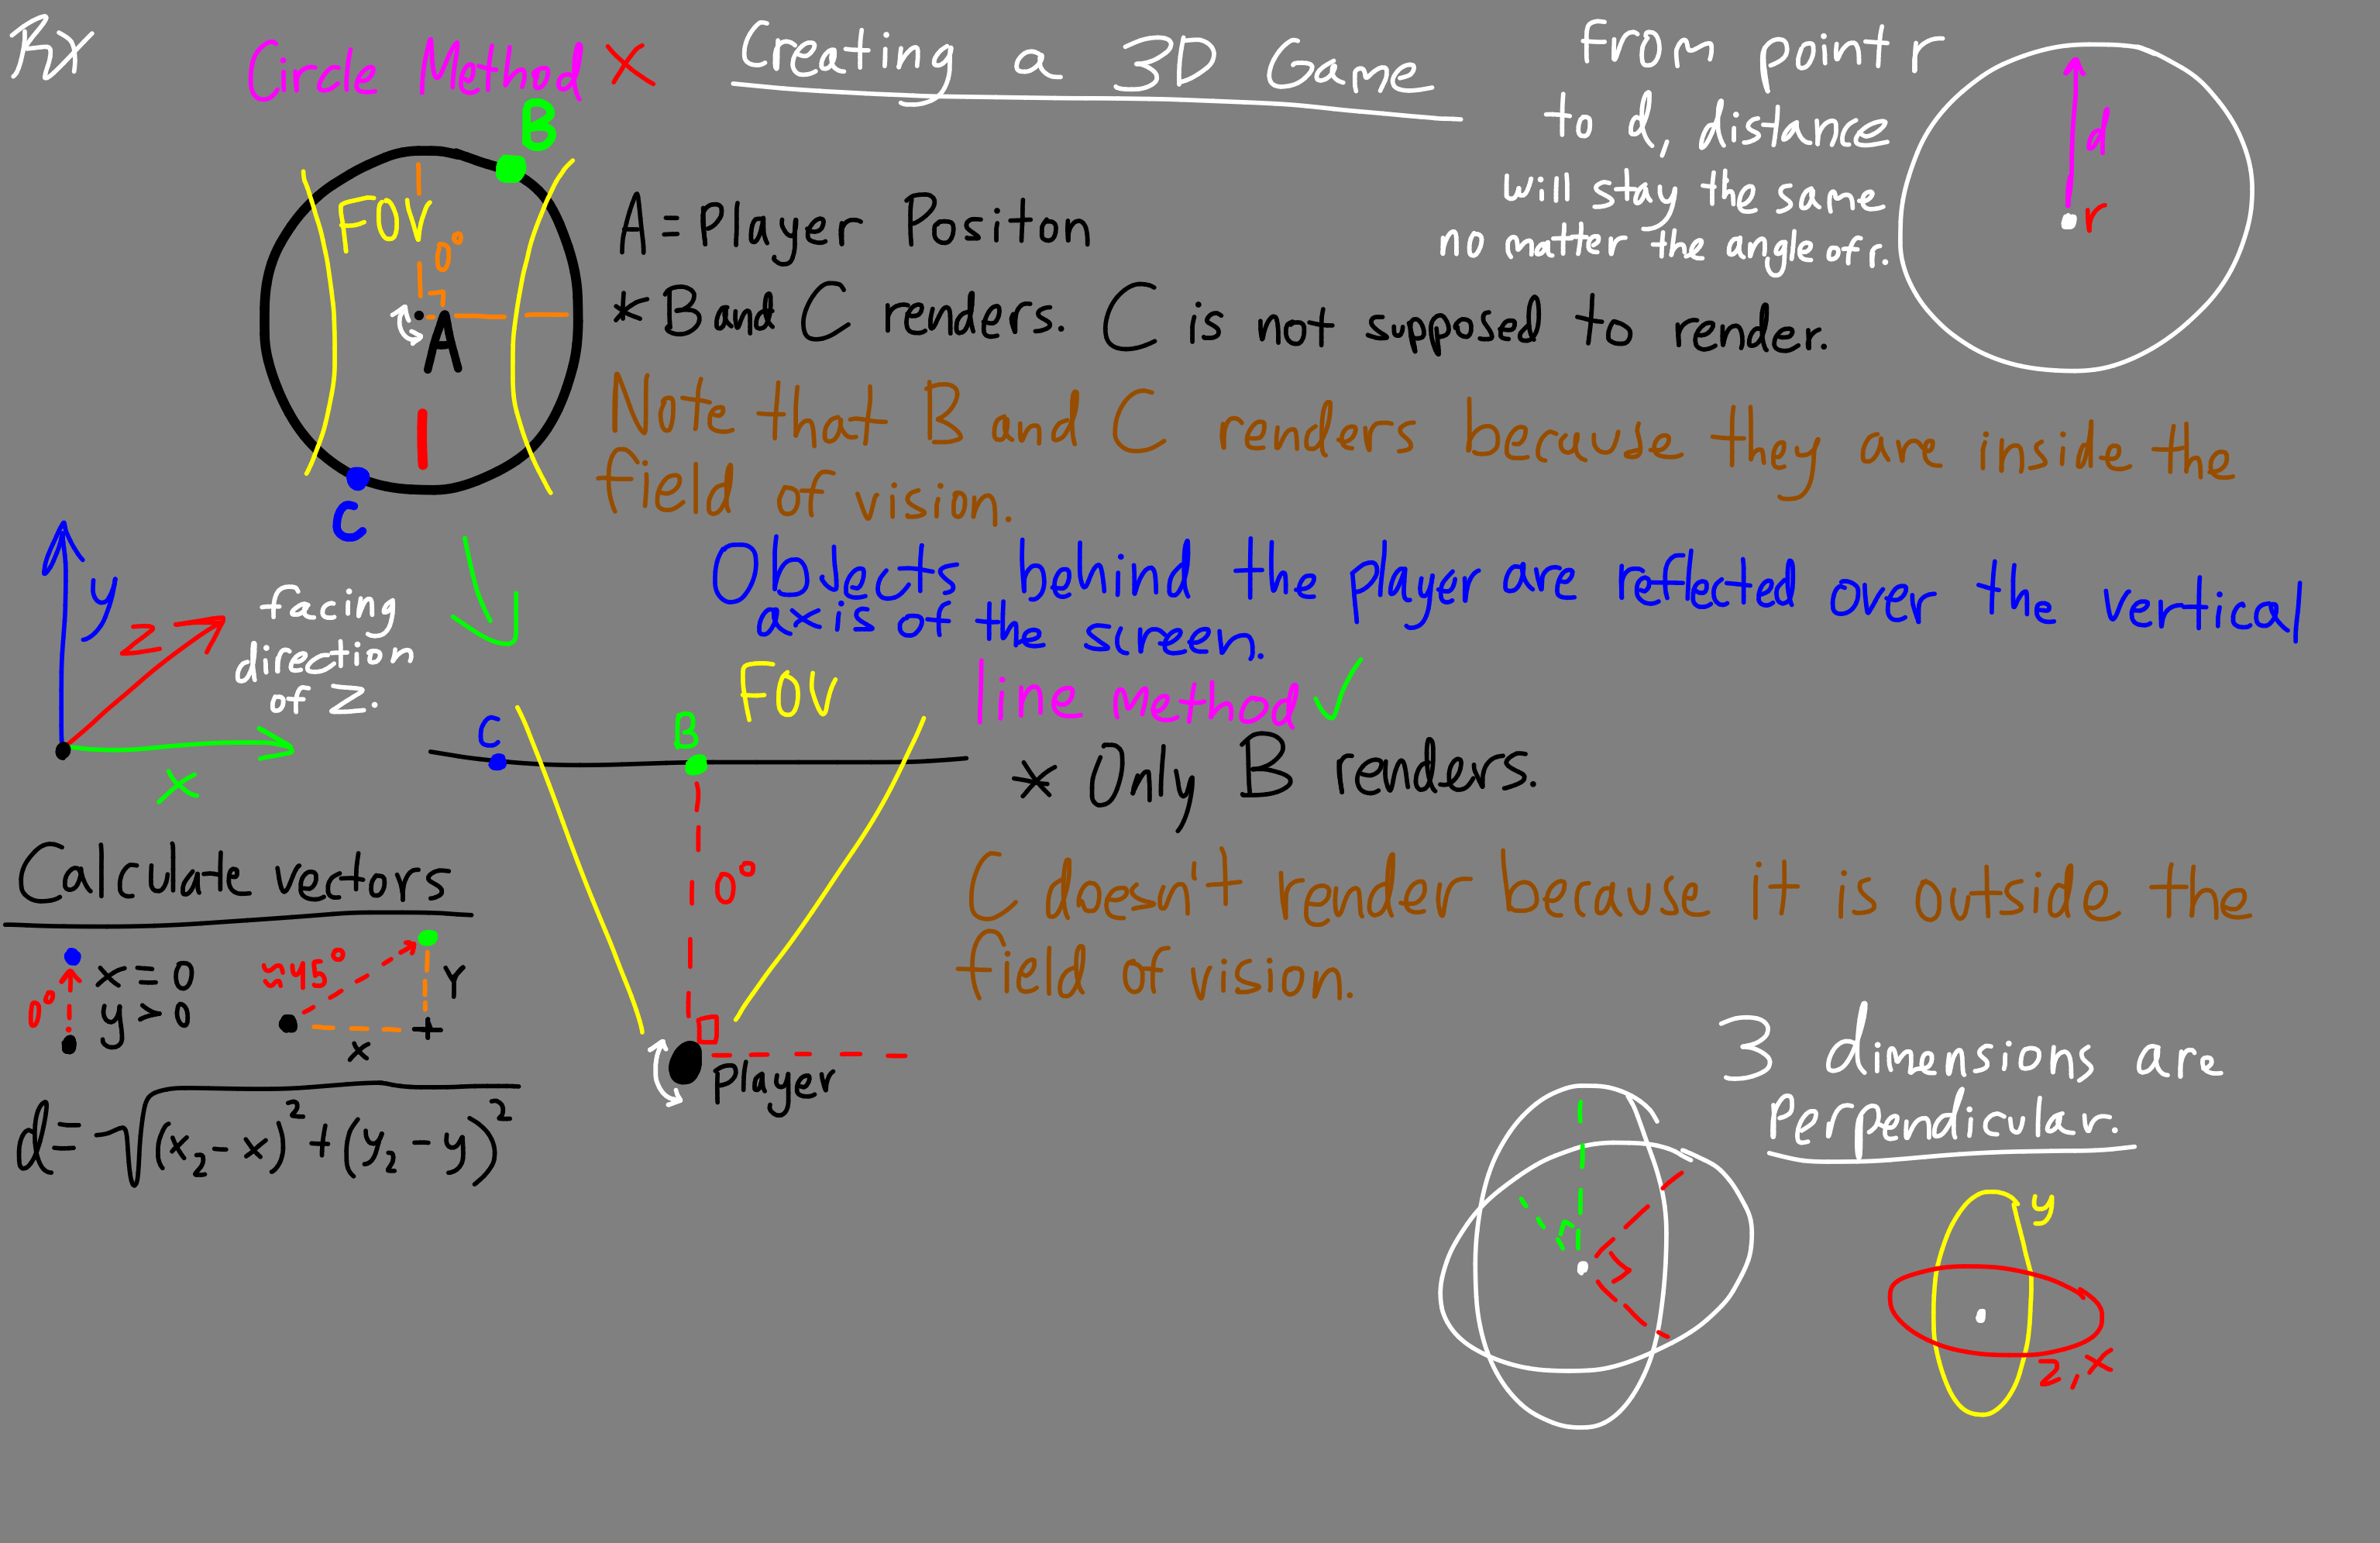 Creating a 3D Game
Circle Method X
B
FOV
0°
A
C
A = Player Positon
* B and C renders. C is not supposed to render.
Note that B and C renders because they are inside the
field of vision.
Objects behind the player are reflected over the vertical
axis of the screen.
from point r
to d, distance
will stay the same
no matter the angle of r.
d
r
y
z
x
facing
direction
of z.
line method ✓
FOV
C
B
0°
Player
* Only B renders.
C doesn't render because it is outside the
field of vision.
Calculate vectors
0°
x = 0
y > 0
≈45°
Y
x
d = √(x₂ - x)² + (y₂ - y)²
3 dimensions are
Perpendicular.
y
z, x